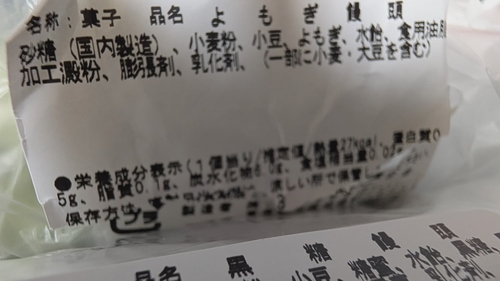 名称:菓子 品名 よもぎ饅頭
砂糖(国内製造)、小麦粉、小豆、よもぎ、水飴、食用油脂
加工澱粉、膨張剤、乳化剤、(一部に小麦・大豆を含む)
●栄養成分表示(1個当り/推定値/熱量27kcal、蛋白質0.
5g、脂質0.1g、炭水化物6.0g、食塩相当量0.0
保存方法 涼しい所で保管し
プラ 製造者
品名 黒糖饅頭
小豆、糖蜜、水飴、黒糖
乳化剤